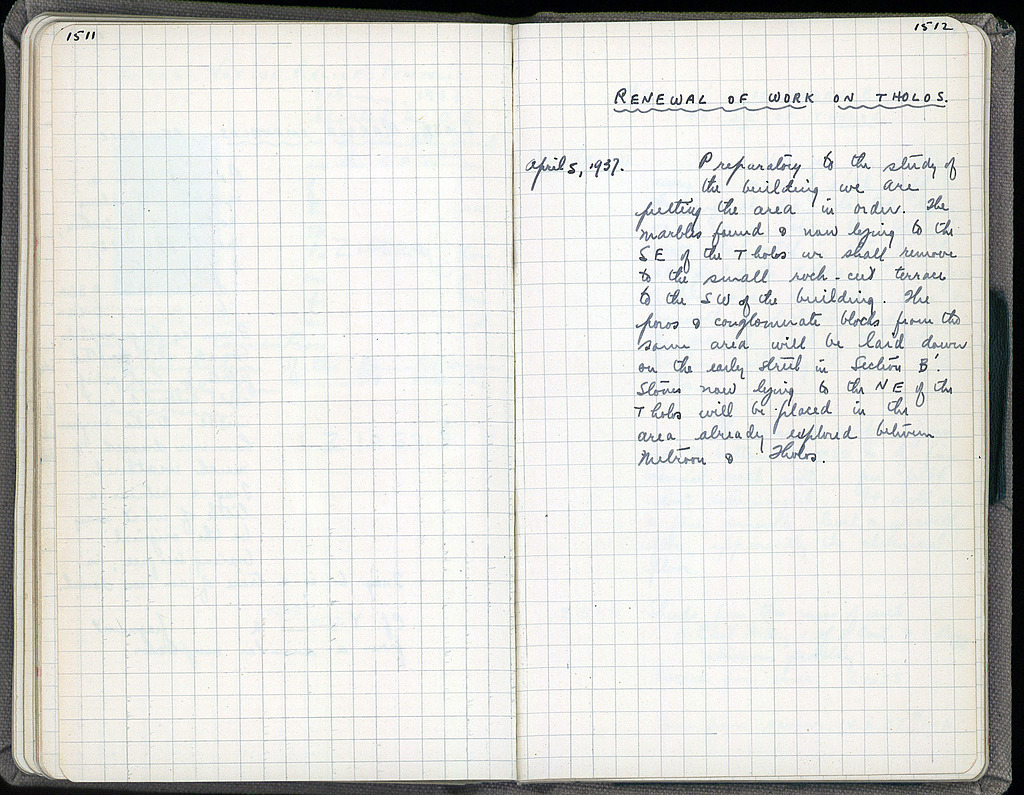 1511
1512
RENEWAL OF WORK ON THOLOS.
April 5, 1937.
Preparatory to the study of
the building we are
putting the area in order. The
marbles found & now lying to the
SE of the Tholos we shall remove
to the small rock-cut terrace
to the SW of the building. The
poros & conglomerate blocks from the
same area will be laid down
on the early street in Section B'.
Stones now lying to the NE of the
Tholos will be placed in the
area already explored between
Metroon & Tholos.